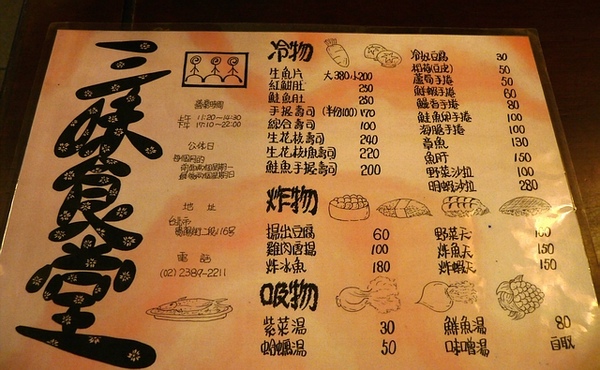 三味食堂
營業時間
上午 11:20~14:30
下午 17:10~22:00
公休日
地址
台北市
貴陽街二段116號
電話
(02)2389-2211
冷物
生魚片 大380小200
紅魽肚 250
鮭魚肚 250
手捲壽司 (半份100)170
綜合壽司 100
生花枝壽司 240
生花枝魚壽司 220
鮭魚手捲壽司 200
冷奴豆腐 30
稻荷(豆皮) 50
蘆筍手捲 50
鮮蝦手捲 60
鰻香手捲 80
鮭魚卵手捲 100
海膽手捲 100
章魚 130
魚肝 150
野菜沙拉 100
明蝦沙拉 280
炸物
揚出豆腐 60
雞肉唐揚 100
炸冰魚 180
野菜天 100
炸魚天 150
炸蝦天 150
吸物
紫菜湯 30
蛤蠣湯 50
鮮魚湯 80
味噌湯 自取